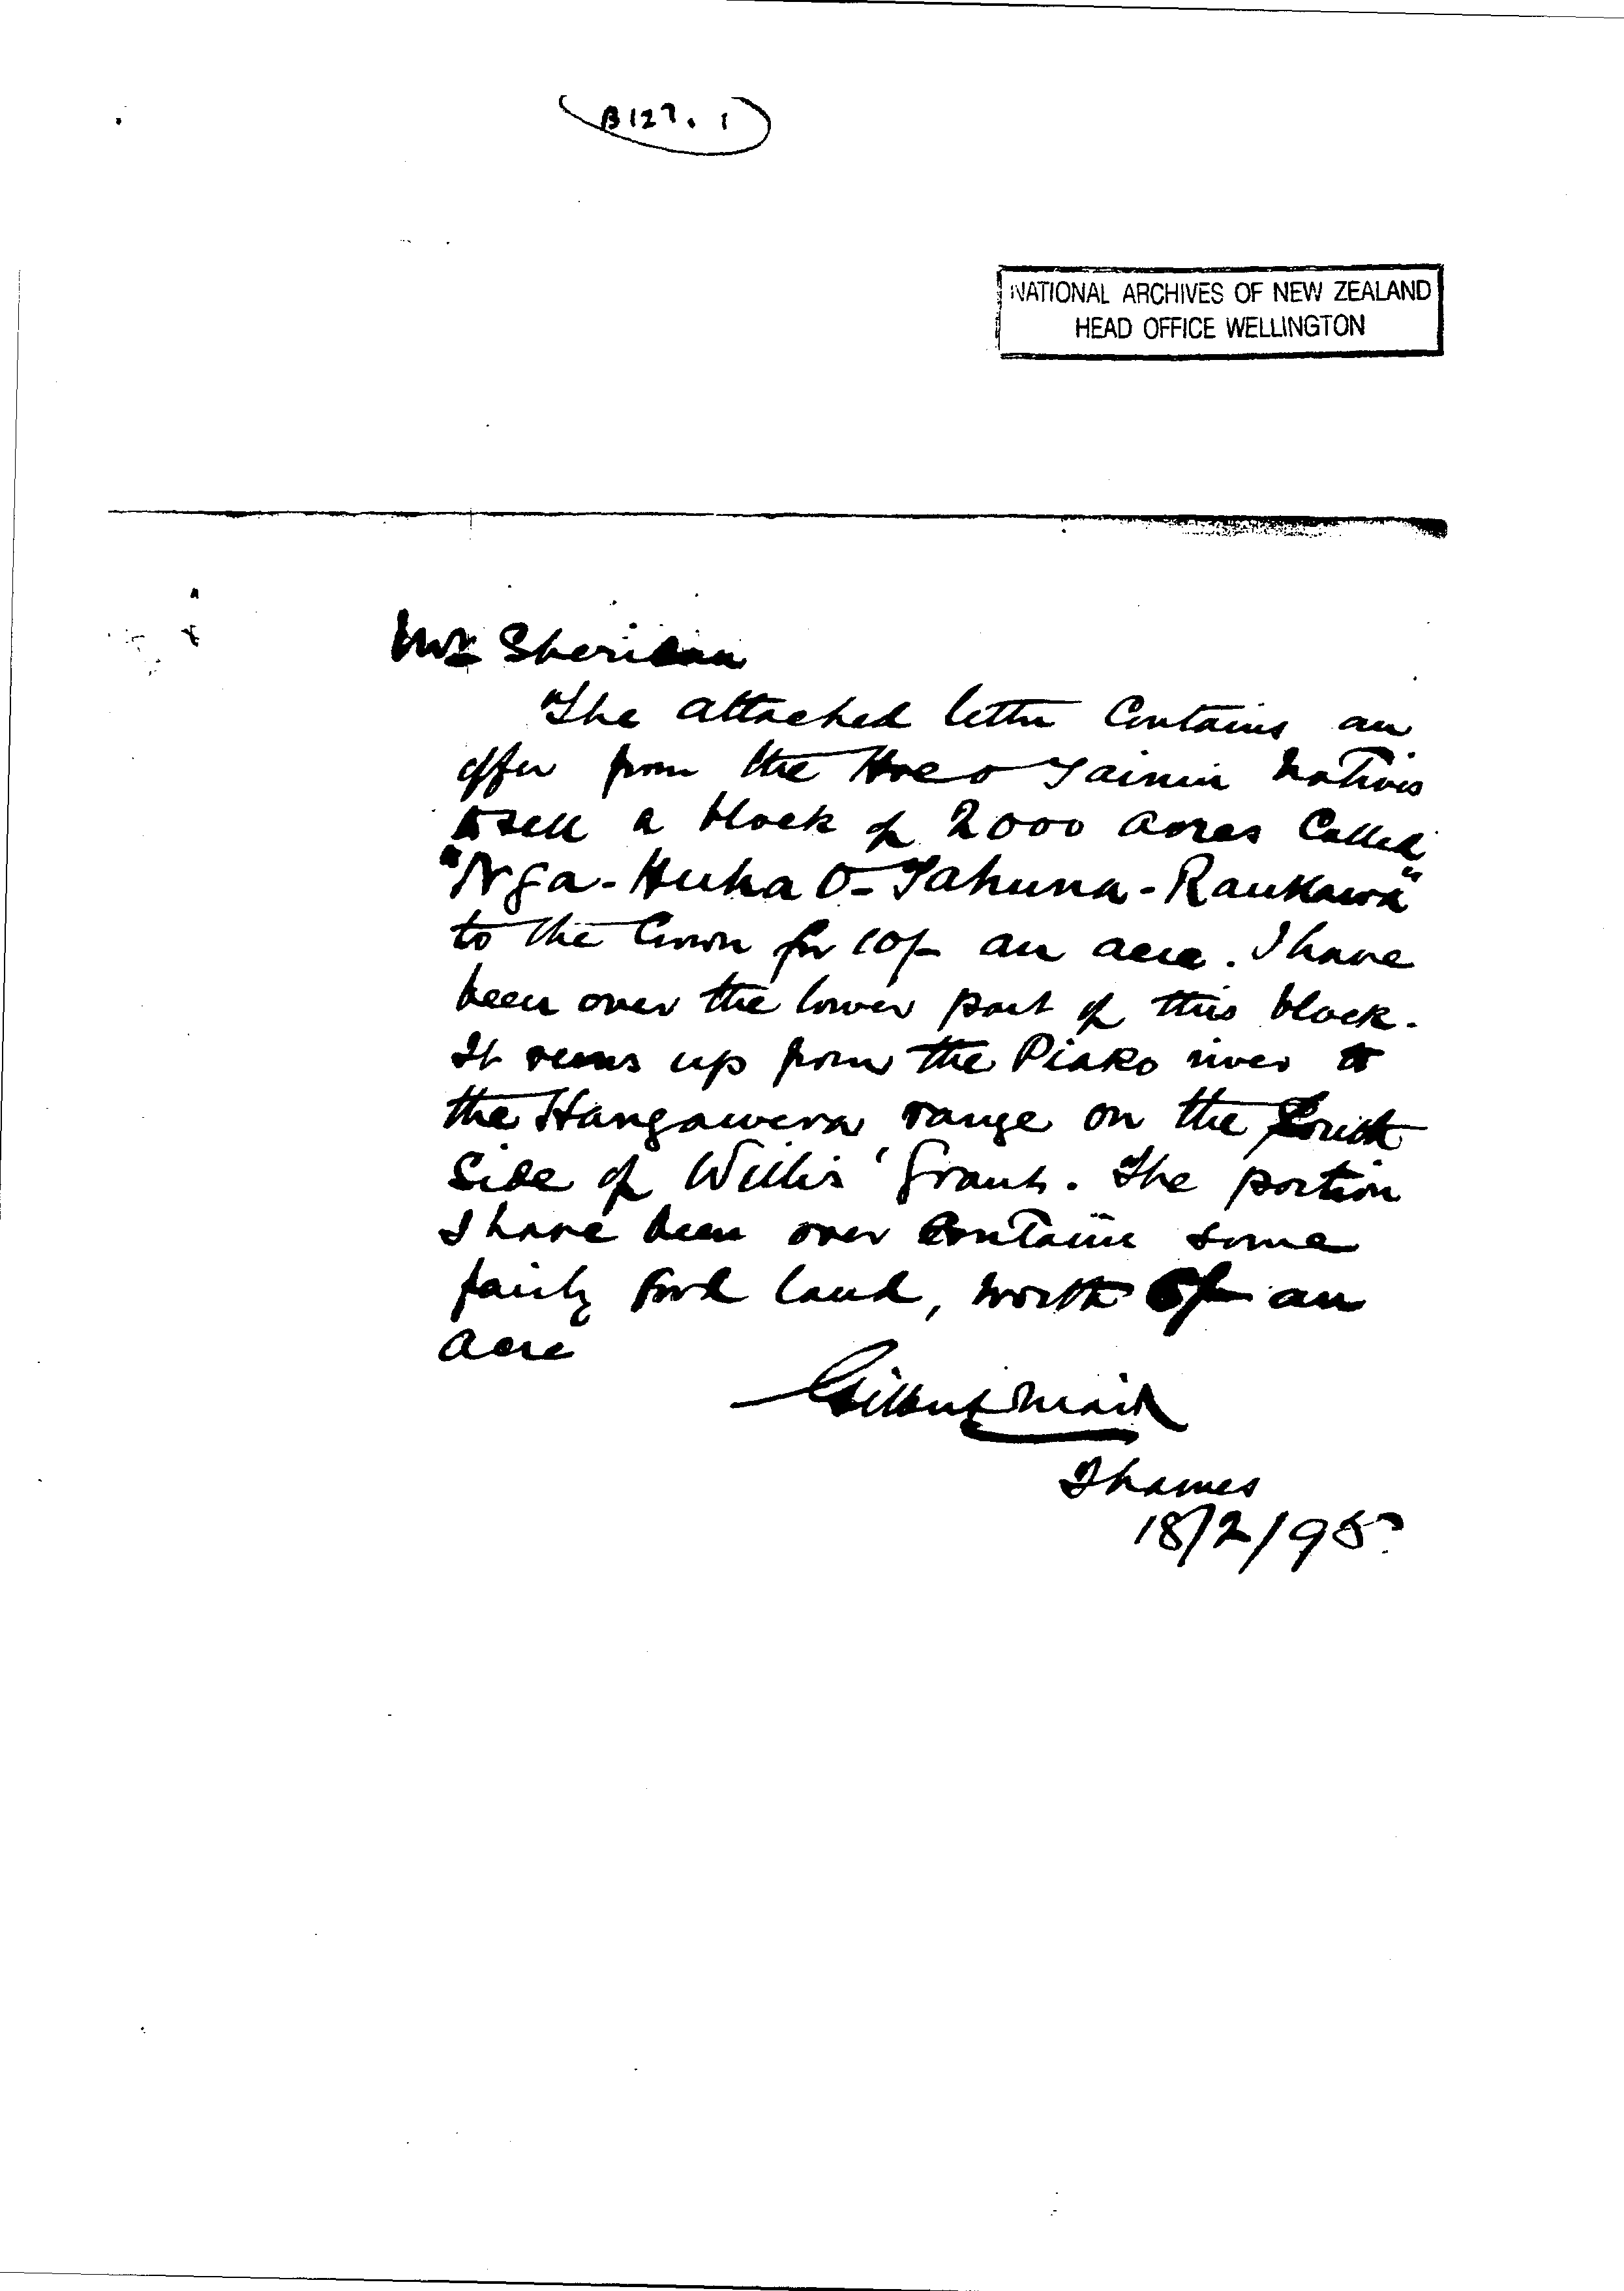 B127.1
NATIONAL ARCHIVES OF NEW ZEALAND
HEAD OFFICE WELLINGTON
Mr Sheridan
The attached letter Contains an
offer from the Hoe o Tainui Natives
to sell a block of 2000 acres Called
"Nga-Huha O-Tahuna-Raukawa"
to the Crown for 10/- an acre. I have
been over the lower part of this block.
It runs up from the Piako river to
the Hangawera range on the South
Side of Willis' Grant. The portion
I have been over Contains some
fairly good land, worth 6/- an
acre
Gilbert Mair
Thames
18/2/95